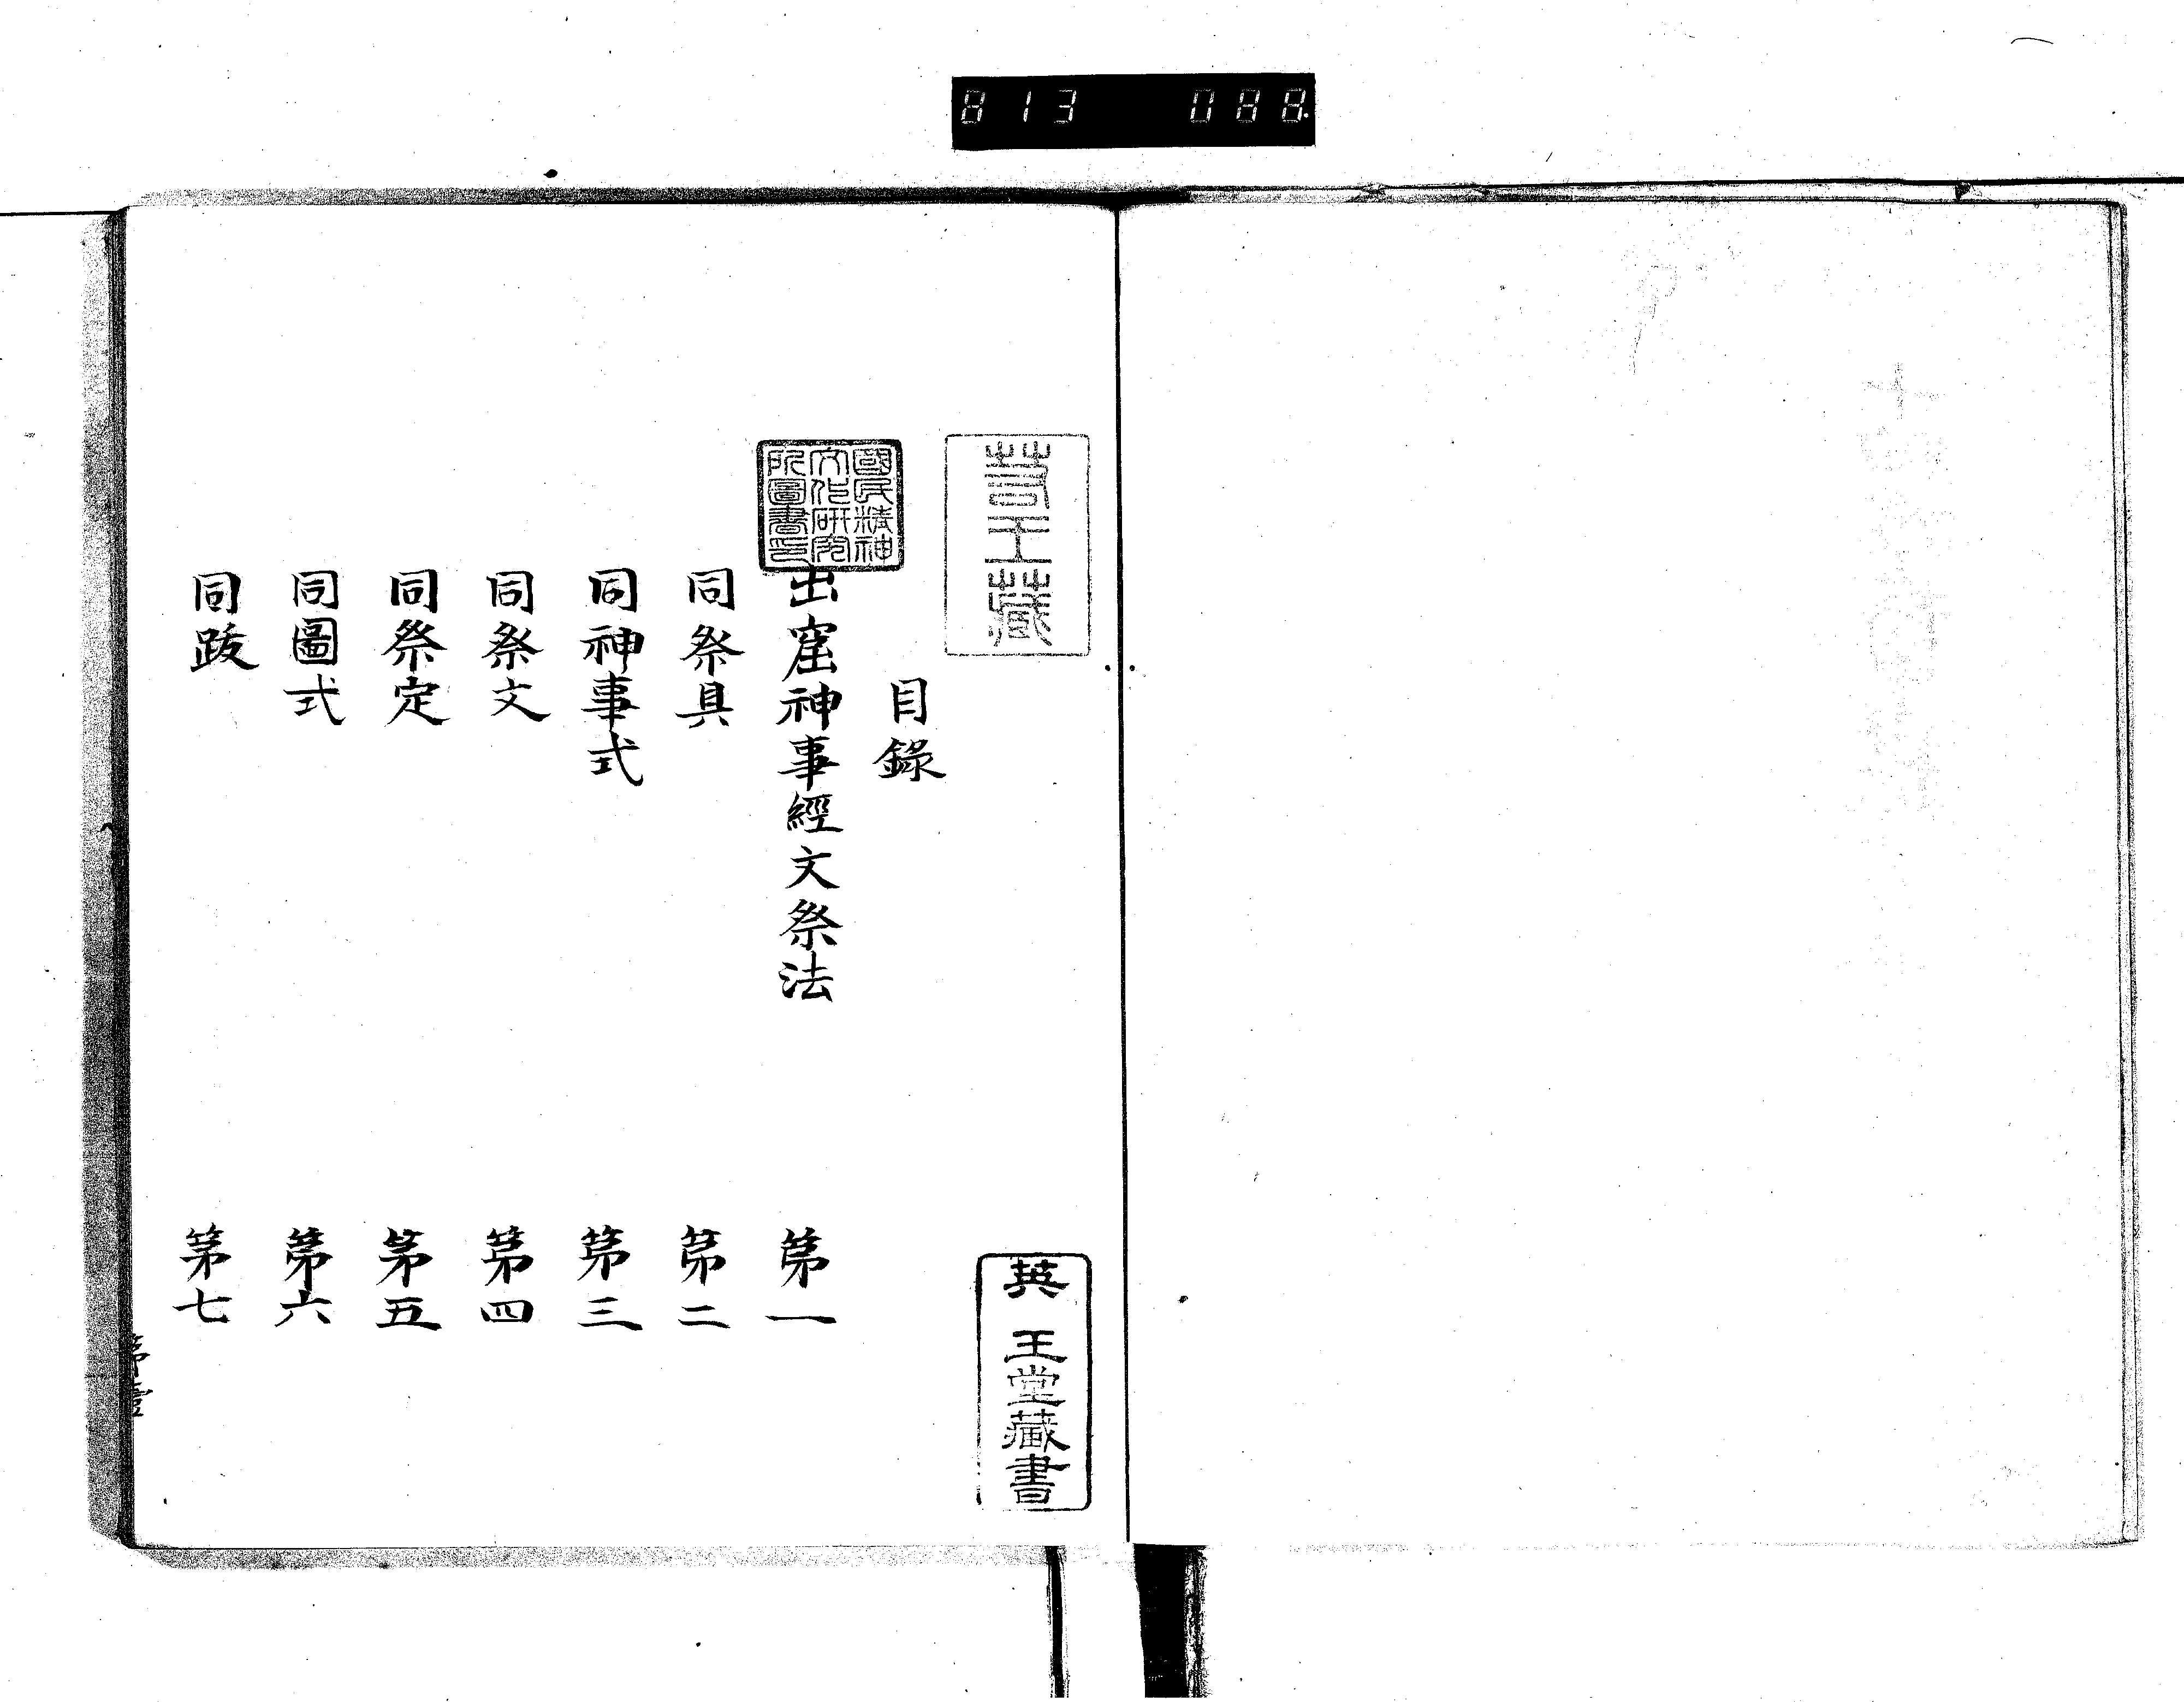 813 088.
英王堂藏書
目錄
國民精神
文化研究
所圖書印
出窟神事經文祭法 第一
同祭具 第二
同神事式 第三
同祭文 第四
同祭定 第五
同圖式 第六
同跋 第七